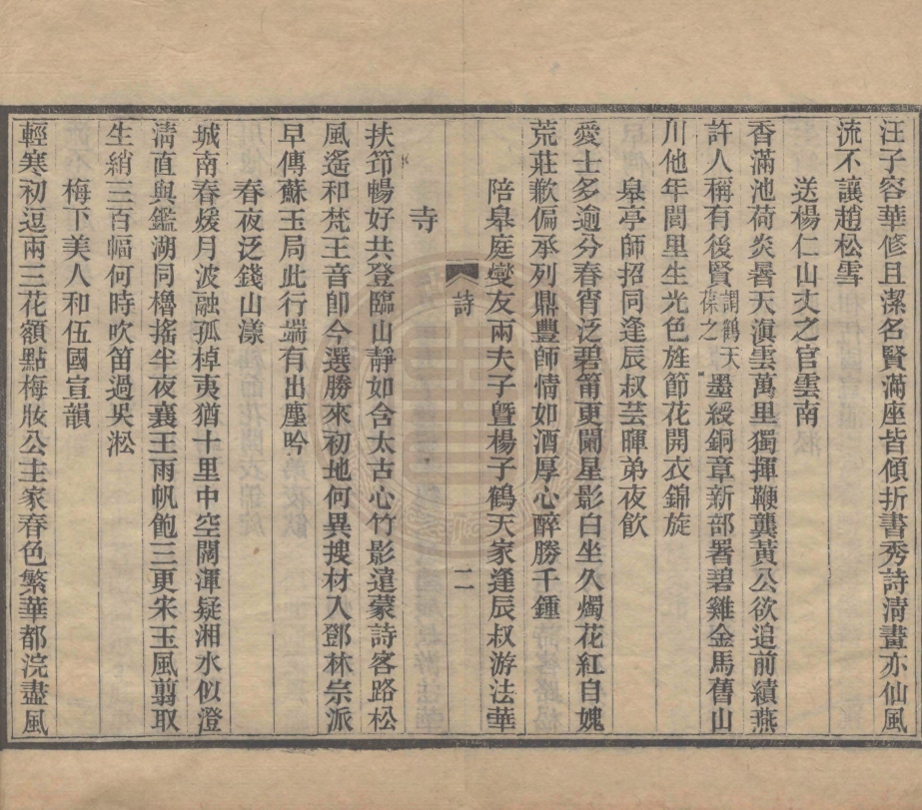 汪子容華修且潔名賢滿座皆傾折書秀詩清畫亦仙風
流不讓趙松雪
送楊仁山丈之官雲南
香滿池荷炎暑天滇雲萬里獨揮鞭龔黃公欲追前績燕
許人稱有後賢謂鶴天葆之墨綬銅章新部署碧雞金馬舊山
川他年閭里生光色旌節花開衣錦旋
皋亭師招同逢辰叔芸暉弟夜飲
愛士多逾分春宵泛碧筩更闌星影白坐久燭花紅自媿
荒莊歉偏承列鼎豐師情如酒厚心醉勝千鍾
陪皋庭燮友兩夫子曁楊子鶴天家逢辰叔游法華
寺
詩
二
扶筇暢好共登臨山靜如含太古心竹影遠蒙詩客路松
風遙和梵王音卽今選勝來初地何異搜材入鄧林宗派
早傳蘇玉局此行端有出塵吟
春夜泛錢山漾
城南春煖月波融孤棹夷猶十里中空闊渾疑湘水似澄
清直與鑑湖同櫓搖半夜襄王雨帆飽三更宋玉風翦取
生綃三百幅何時吹笛過吳淞
梅下美人和伍國宣韻
輕寒初逗兩三花額點梅妝公主家春色繁華都浣盡風